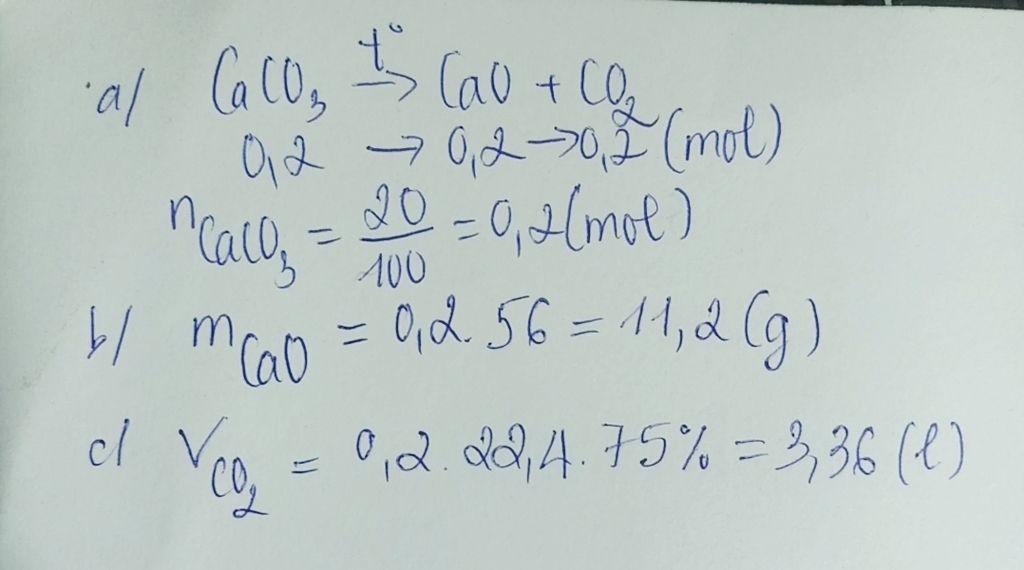 a/ CaCO₃ t°→ CaO + CO₂
0,2 → 0,2 → 0,2 (mol)
nCaCO₃ = 20/100 = 0,2 (mol)
b/ mCaO = 0,2 . 56 = 11,2 (g)
c/ VCO₂ = 0,2 . 22,4 . 75% = 3,36 (l)